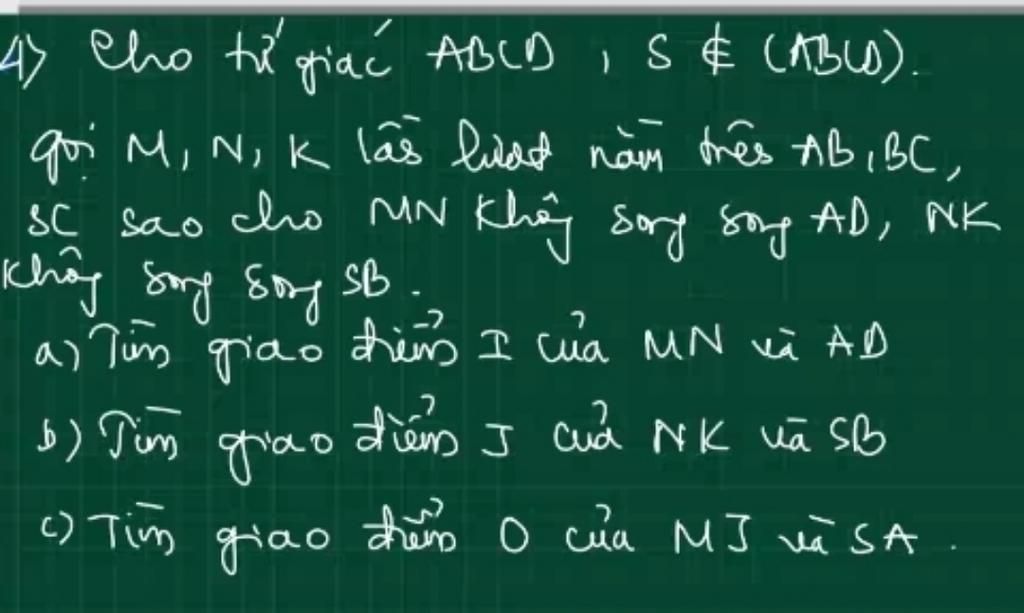 4) Cho tứ giác ABCD, S ∉ (ABCD).
gọi M, N, K lần lượt nằm trên AB, BC,
SC sao cho MN không song song AD, NK
không song song SB.
a) Tìm giao điểm I của MN và AD
b) Tìm giao điểm J của NK và SB
c) Tìm giao điểm O của MJ và SA.